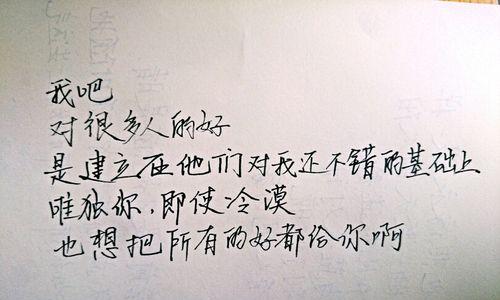 我吧
对很多人的好
是建立在他们对我还不错的基础上
唯独你，即使冷漠
也想把所有的好都给你啊